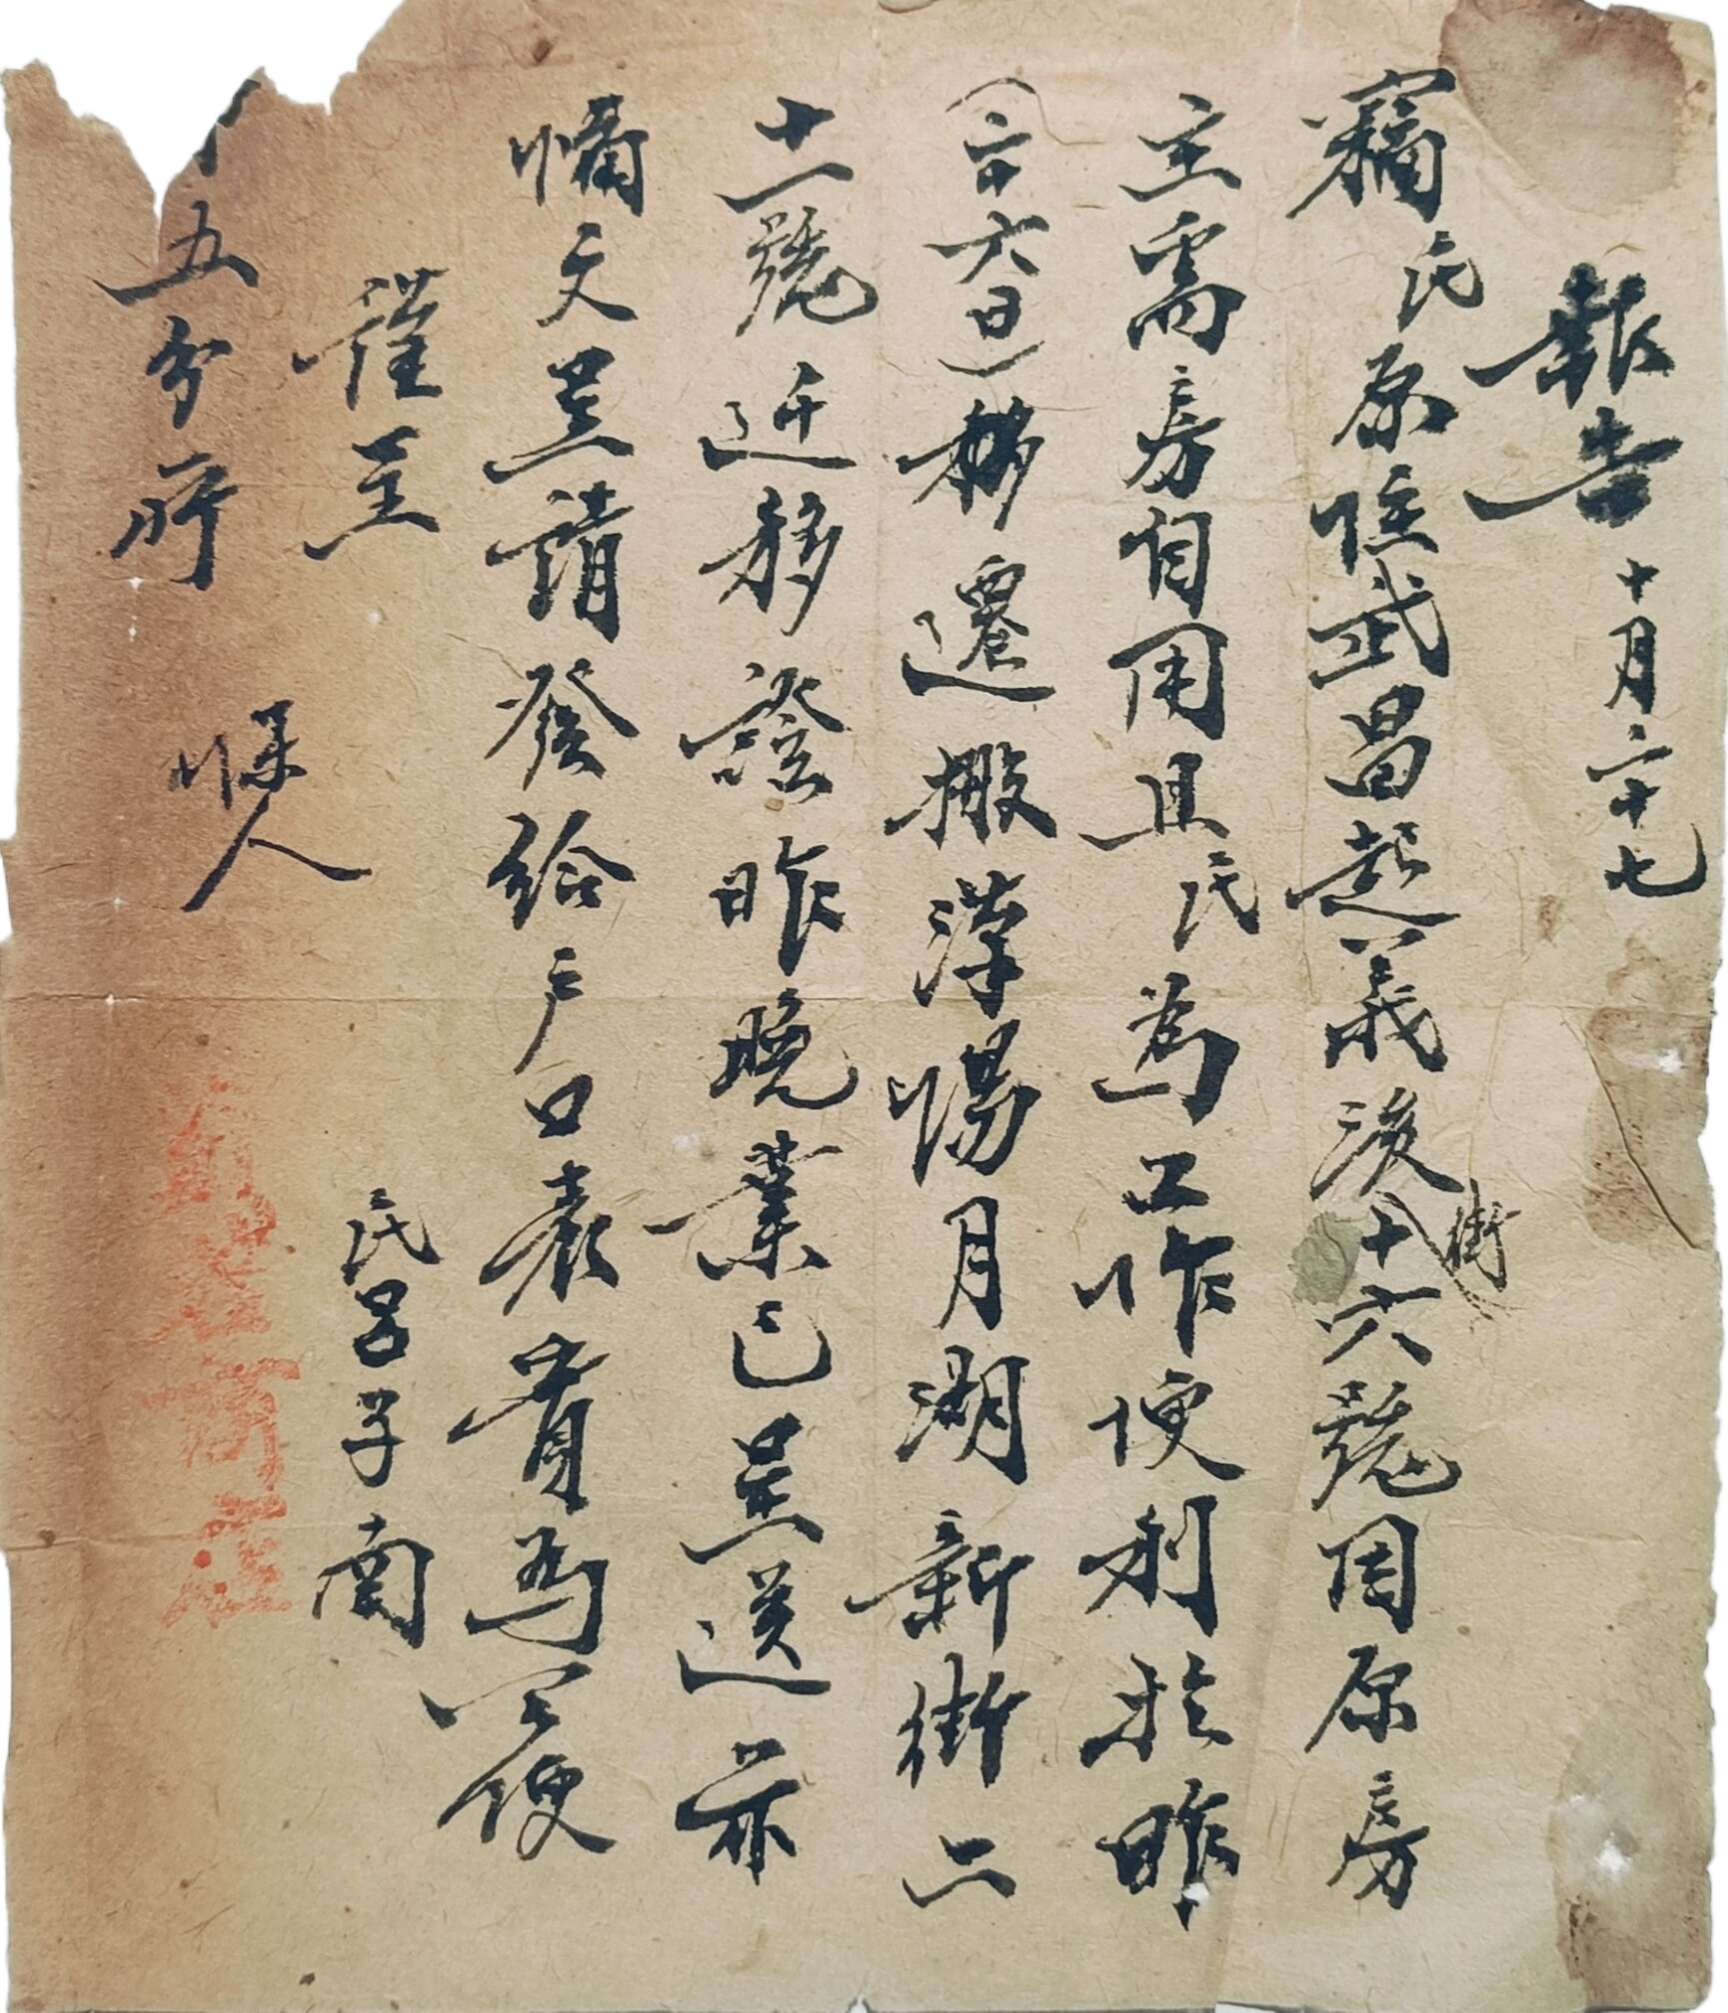 報告 十月二十七
竊民原住武昌起義後街十六號因原房
主需房自用且民為工作便利於昨
(二十六日)移遷搬漢陽月湖新街二
十一號迁移證昨晚業已呈送亦
備文呈請發給户口表賫為公便
謹呈
五分所 保人
民呂子南